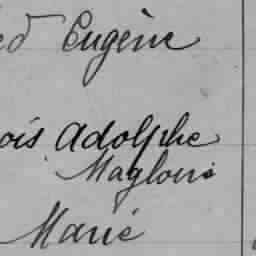 ed Eugène
ois Adolphe
Magloire
Marie